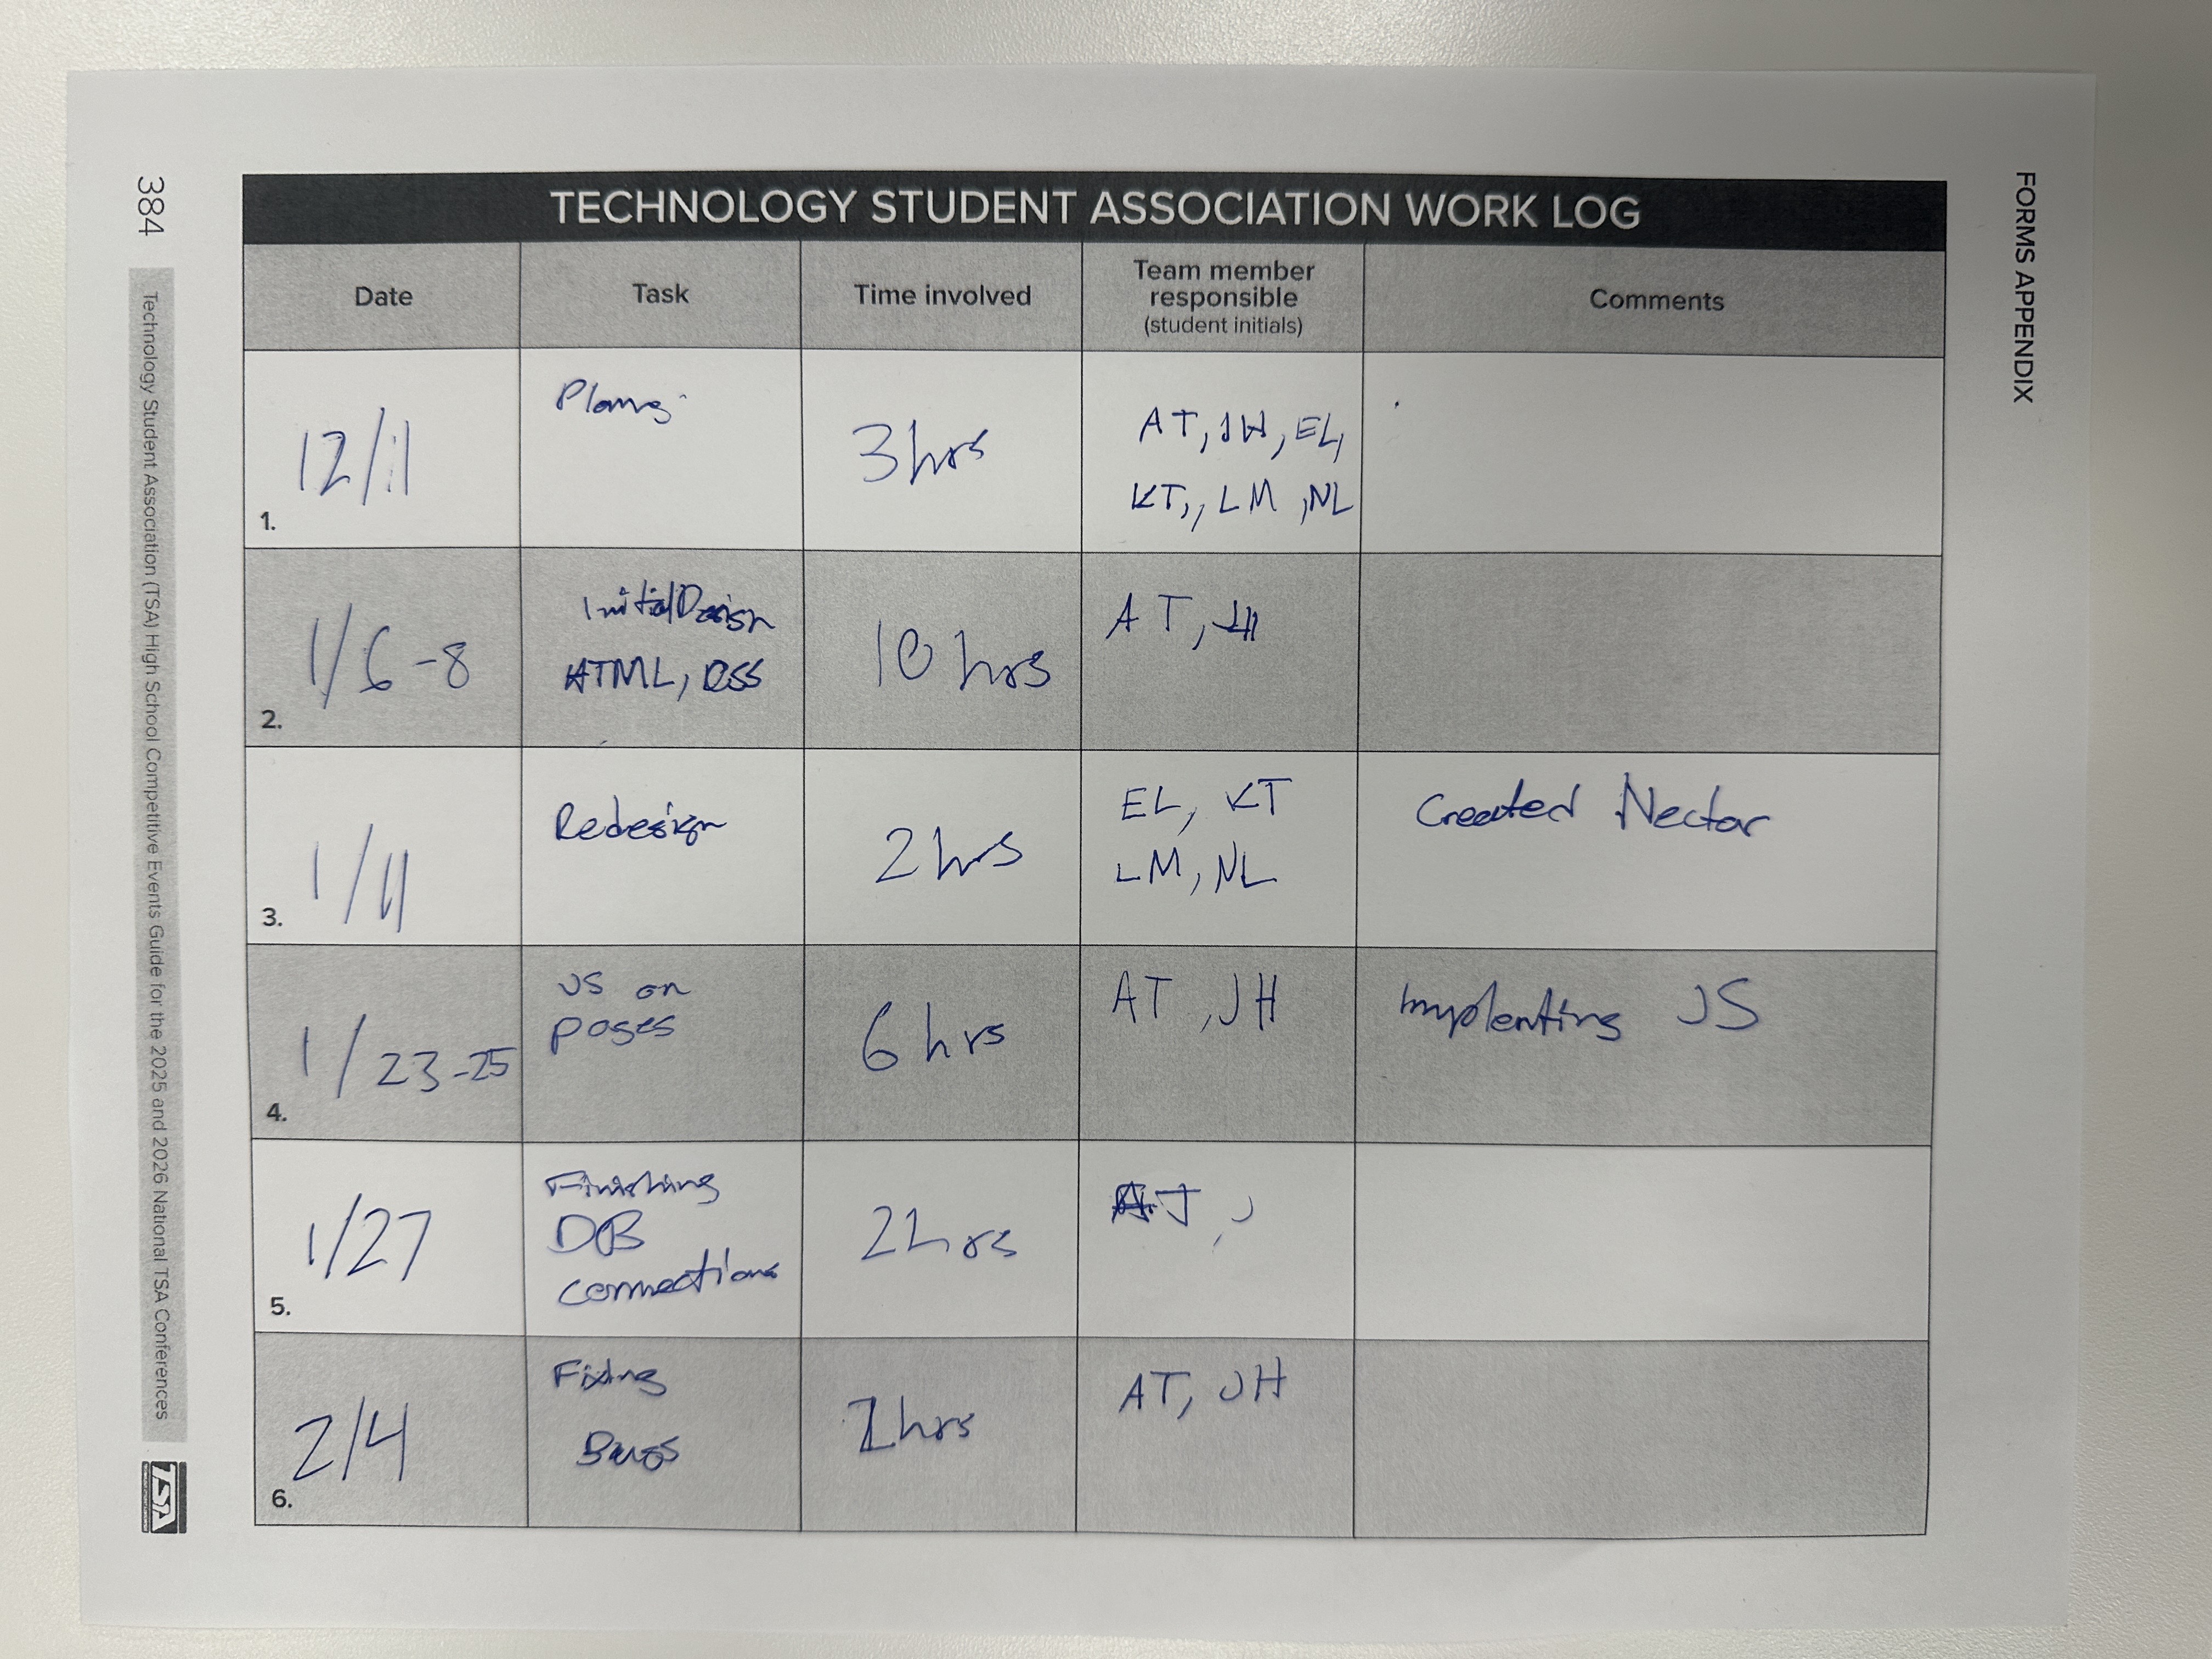 FORMS APPENDIX
TECHNOLOGY STUDENT ASSOCIATION WORK LOG
Date
Task
Time involved
Team member
responsible
(student initials)
Comments
1.
12/11
Plans
3hrs
AT, JH, EL,
KT, LM, NL
2.
1/6-8
Initial Design
HTML, CSS
10 hrs
AT, JH
3.
1/11
Redesign
2 hrs
EL, KT
LM, NL
Created Nector
4.
1/23-25
JS on
pages
6 hrs
AT, JH
Implenting JS
5.
1/27
Finishing
DB
connections
2hrs
6.
2/4
Fixing
Bugs
hrs
AT, JH
384
Technology Student Association (TSA) High School Competitive Events Guide for the 2025 and 2026 National TSA Conferences
TSA